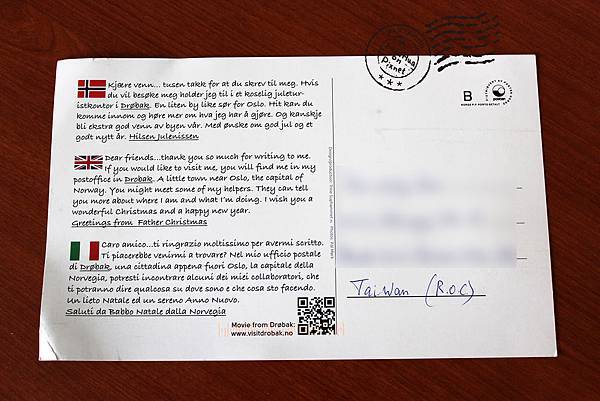 Kjære venn... tusen takk for at du skrev til meg. Hvis
du vil besøke meg holder jeg til i et koselig juletur-
istkontor i Drøbak. En liten by like sør for Oslo. Hit kan du
komme innom og høre mer om hva jeg har å gjøre. Og kanskje
bli ekstra god venn av byen vår. Med ønske om god jul og et
godt nytt år. Hilsen Julenissen
Dear friends...thank you so much for writing to me.
If you would like to visit me, you will find me in my
postoffice in Drobak. A little town near Oslo, the capital of
Norway. You might meet some of my helpers. They can tell
you more about where I am and what I'm doing. I wish you a
wonderful Christmas and a happy new year.
Greetings from Father Christmas
Caro amico...ti ringrazio moltissimo per avermi scritto.
Ti piacerebbe venirmi a trovare? Nel mio ufficio postale
di Drøbak, una cittadina appena fuori Oslo, la capitale della
Norvegia, potresti incontrare alcuni dei miei collaboratori, che
ti potranno dire qualcosa su dove sono e che cosa sto facendo.
Un lieto Natale ed un sereno Anno Nuovo.
Saluti da Babbo Natale dalla Norvegia
Movie from Drøbak:
www.visitdrobak.no
on
Pixnet
B
Taiwan (R.O.C)